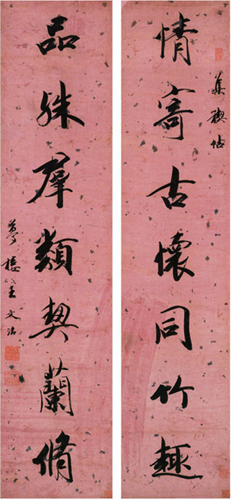 情寄古懷同竹趣
集禊帖
品殊羣類契蘭脩
夢樓王文治